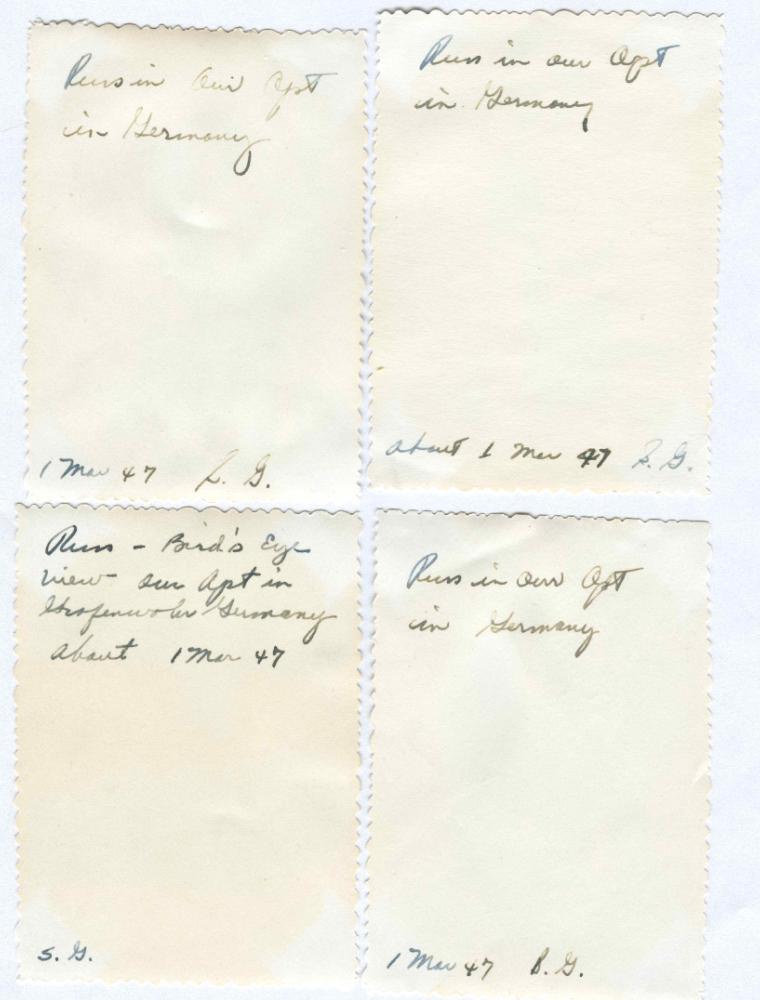 Russ in our Apt
in Germany
1 Mar 47 G.
Russ in our Apt
in Germany
about 1 Mar 47 G.
Russ - Bird's Eye
view - our Apt in
Grafenwohr Germany
about 1 Mar 47
S. G.
Russ in our Apt
in Germany
1 Mar 47 B. G.